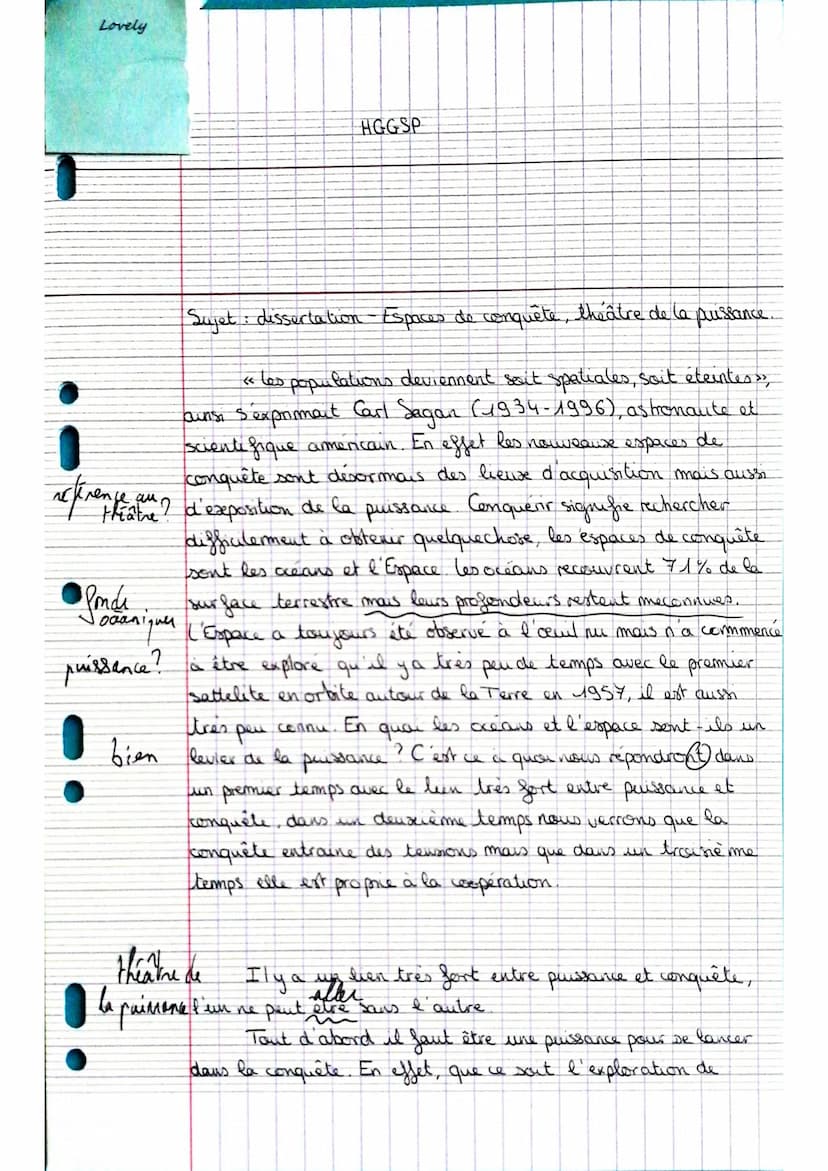 Lovely
HGGSP
Sujet : dissertation - Espaces de conquête, théâtre de la puissance.
« Les populations deviennent soit spatiales, soit éteintes »,
ainsi s'exprimait Carl Sagan (1934-1996), astronaute et
scientifique américain. En effet les nouveaux espaces de
conquête sont désormais des lieux d'acquisition mais aussi
référence au théâtre?
d'exposition de la puissance. Conquérir signifie rechercher
difficilement à obtenir quelquechose, les espaces de conquête
sont les océans et l'Espace. Les océans recouvrent 71% de la
fonds océaniques
surface terrestre mais leurs profondeurs restent meconnues.
L'Espace a toujours été observé à l'oeuil nu mais n'a commmencé
puissance?
à être exploré qu'il y a très peu de temps avec le premier
sattelite en orbite autour de la Terre en 1957, il est aussi
très peu connu. En quoi les océans et l'espace sont-ils un
bien
levier de la puissance ? C'est ce à quoi nous répondront dans
un premier temps avec le lien très fort entre puissance et
conquête, dans un deuxième temps nous verrons que la
conquête entraine des tensions mais que dans un troisième
temps elle est propice à la coopération.
théâtre de la puissance
Il y a un lien très fort entre puissance et conquête,
aller
l'un ne peut être sans l'autre.
Tout d'abord il faut être une puissance pour se lancer
dans la conquête. En effet, que ce soit l'exploration de